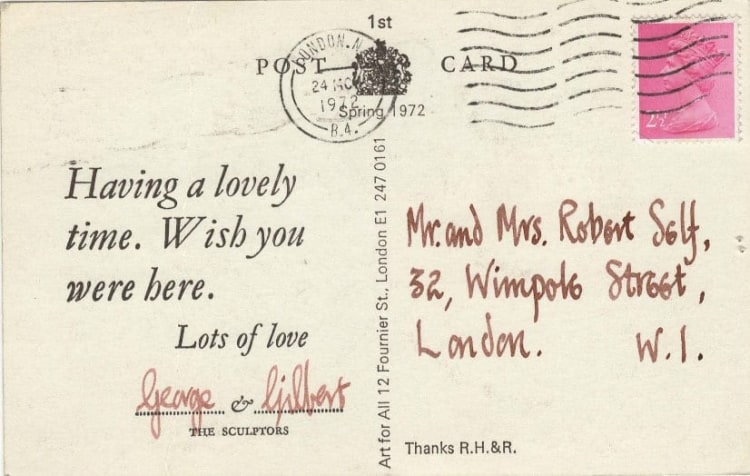 1st
POST CARD
LONDON.N
24
1972
B.4.
Spring 1972
Having a lovely
time. Wish you
were here.
Lots of love
George & Gilbert
THE SCULPTORS
Art for All 12 Fournier St., London E1 247 0161
Mr. and Mrs. Robert Self,
32, Wimpole Street,
London. W.1.
Thanks R.H.&R.